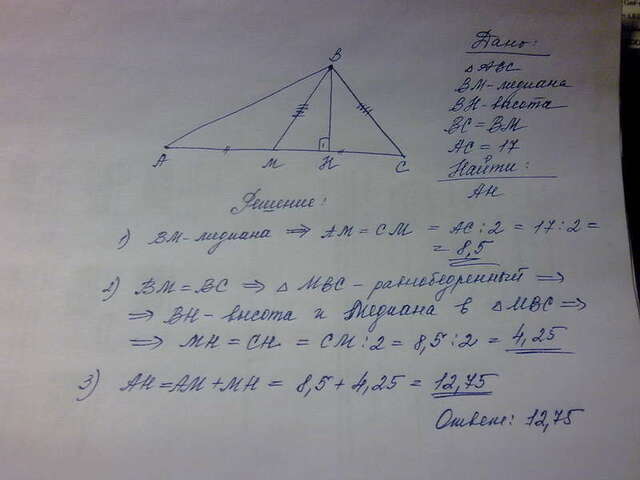 Дано:
△ABC
BM - медиана
BH - высота
BC = BM
AC = 17
Найти:
AH
B
A
M
H
C
Решение:
1) BM - медиана ⟹ AM = CM = AC : 2 = 17 : 2 =
= 8,5
2) BM = BC ⟹ △MBC - равнобедренный ⟹
⟹ BH - высота и медиана в △MBC ⟹
⟹ MH = CH = CM : 2 = 8,5 : 2 = 4,25
3) AH = AM + MH = 8,5 + 4,25 = 12,75
Ответ: 12,75